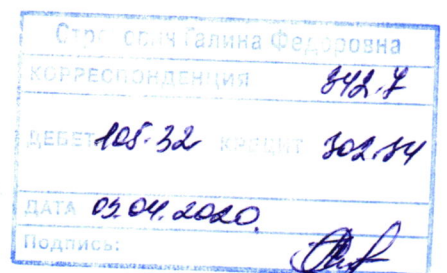 Галина Федоровна
КОРРЕСПОНДЕНЦИЯ 342.7
ДЕБЕТ 105.32 КРЕДИТ 302.34
ДАТА 09.04.2020
Подпись: